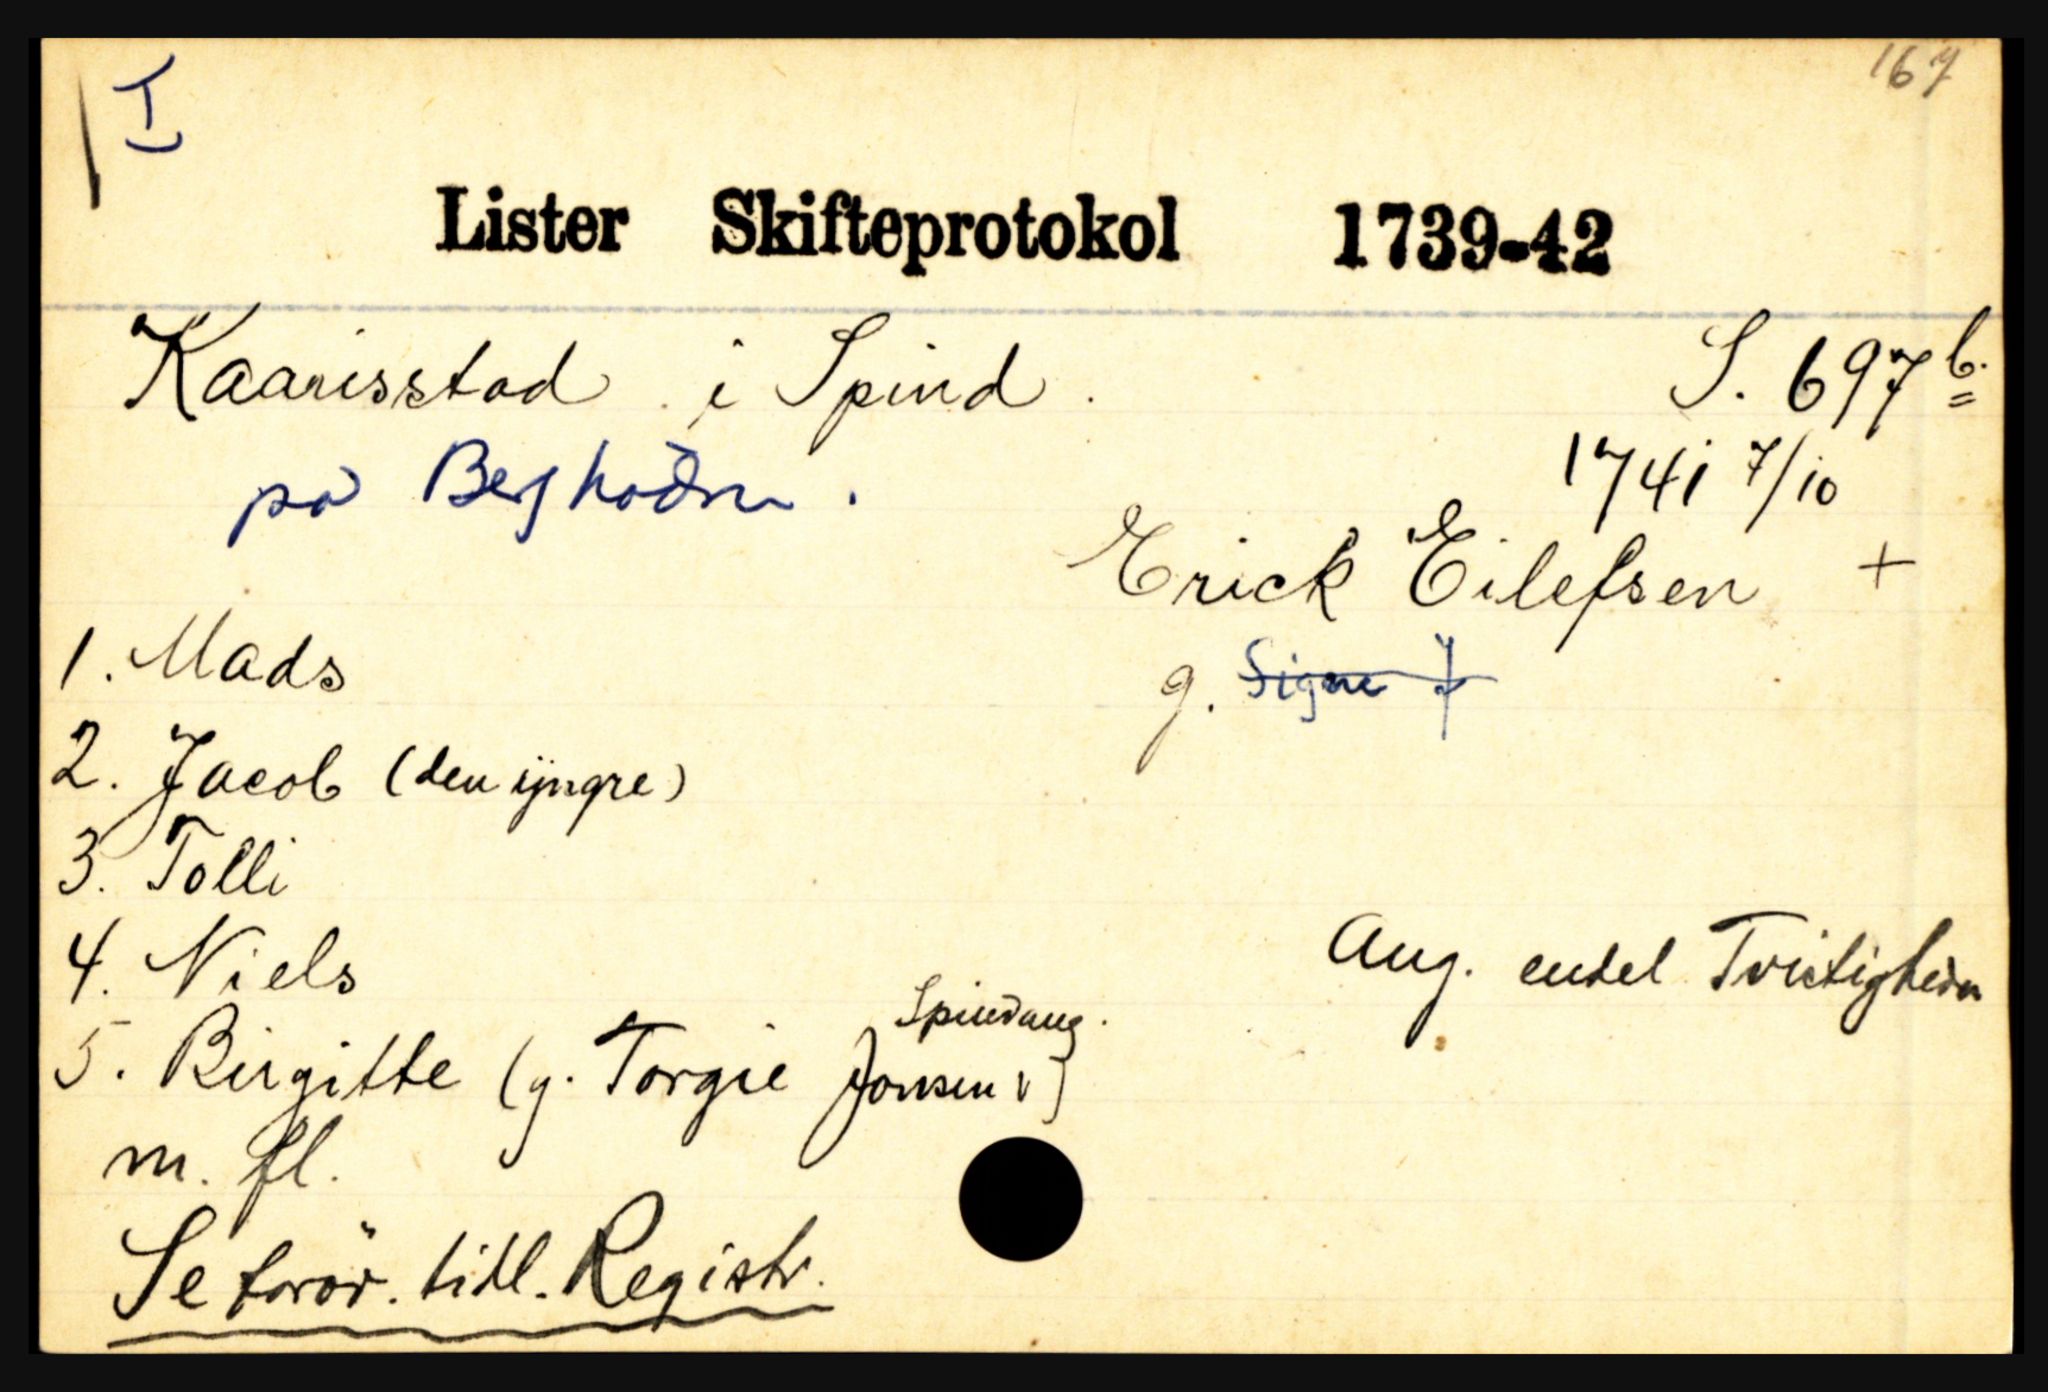 I 167
Lister Skifteprotokol 1739-42
Kaarisstad i Spind. S. 697 b.
på 1741 7/10
Erick Eilefsen +
1. Mads g. Signe
2. Jacob (den yngre)
3. Tolli
4. Niels Ang. endel Tvistigheder
Spindang.
5. Birgitte (g. Torgie Jonsen)
m. fl.
Se forøv. tidl. Registr.